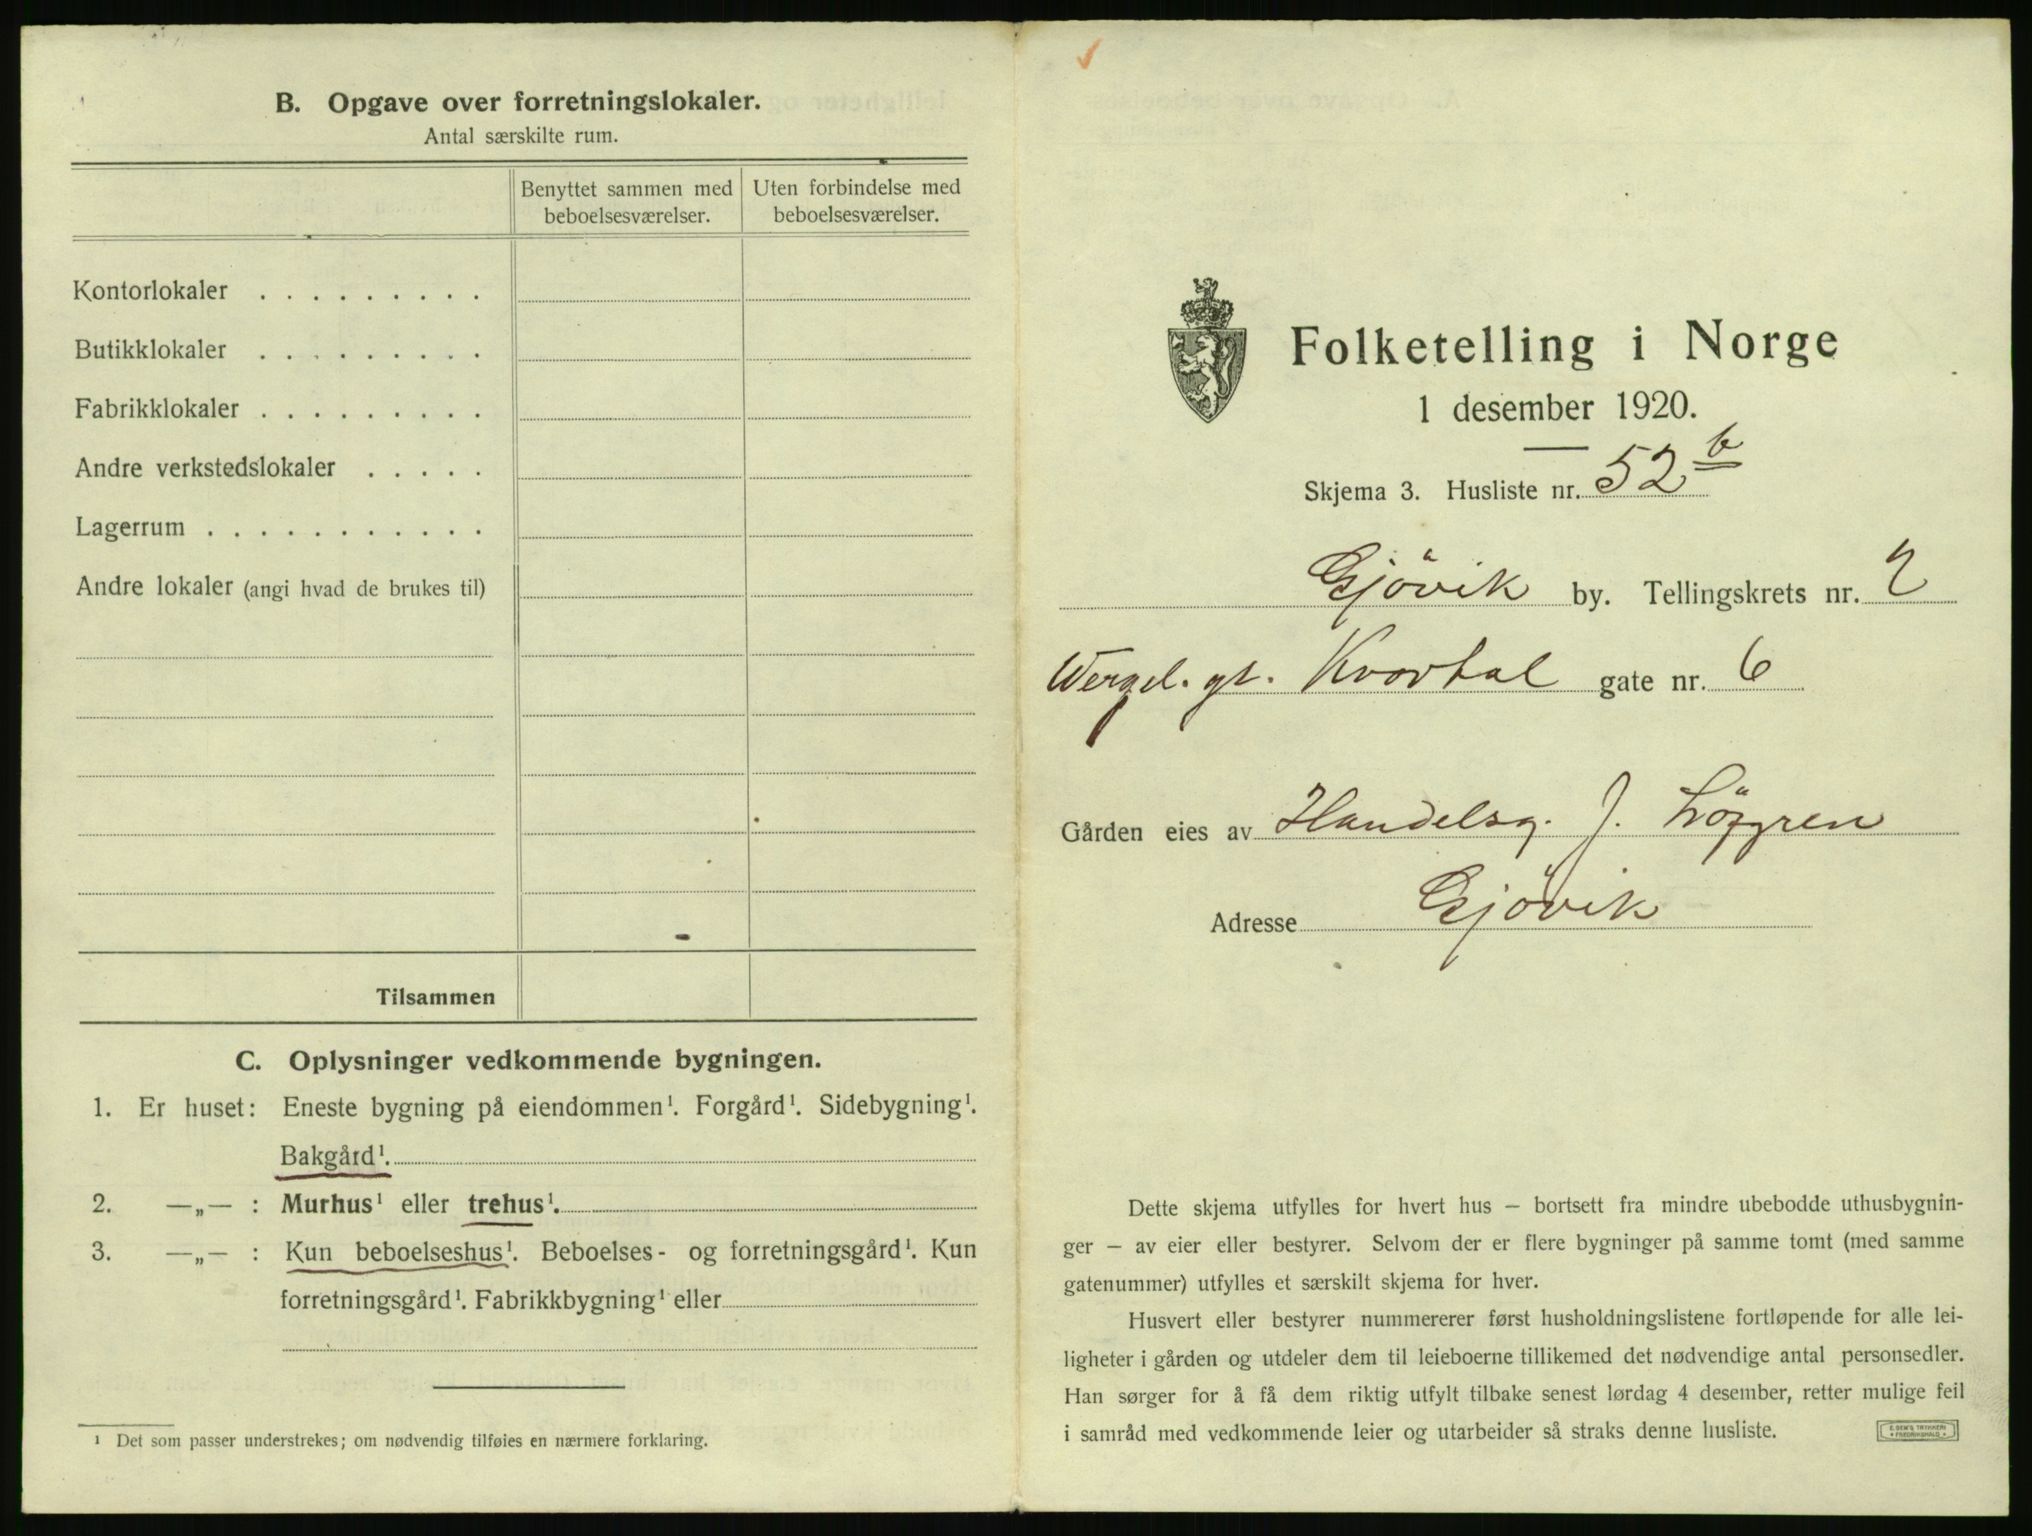 B. Opgave over forretningslokaler.
Antal særskilte rum.
Benyttet sammen med beboelsesværelser.
Uten forbindelse med beboelsesværelser.
Kontorlokaler . . . . . . . . .
Butikklokaler . . . . . . . . .
Fabrikklokaler . . . . . . . . .
Andre verkstedslokaler . . . . .
Lagerrum . . . . . . . . . . .
Andre lokaler (angi hvad de brukes til)
Tilsammen
C. Oplysninger vedkommende bygningen.
1. Er huset: Eneste bygning på eiendommen¹. Forgård¹. Sidebygning¹.
Bakgård¹.
2. —„— : Murhus¹ eller trehus¹.
3. —„— : Kun beboelseshus¹. Beboelses- og forretningsgård¹. Kun
forretningsgård¹. Fabrikkbygning¹ eller
¹ Det som passer understrekes; om nødvendig tilføies en nærmere forklaring.
Folketelling i Norge
1 desember 1920.
Skjema 3. Husliste nr. 52 b
Gjövik by. Tellingskrets nr. 2
Wergel. gt. Kvartal gate nr. 6
Gården eies av Handelsg. J. Löfgren
Adresse Gjövik
Dette skjema utfylles for hvert hus — bortsett fra mindre ubebodde uthusbygnin-
ger — av eier eller bestyrer. Selvom der er flere bygninger på samme tomt (med samme
gatenummer) utfylles et særskilt skjema for hver.
Husvert eller bestyrer nummererer først husholdningslistene fortløpende for alle lei-
ligheter i gården og utdeler dem til leieboerne tillikemed det nødvendige antal personsedler.
Han sørger for å få dem riktig utfylt tilbake senest lørdag 4 desember, retter mulige feil
i samråd med vedkommende leier og utarbeider så straks denne husliste.